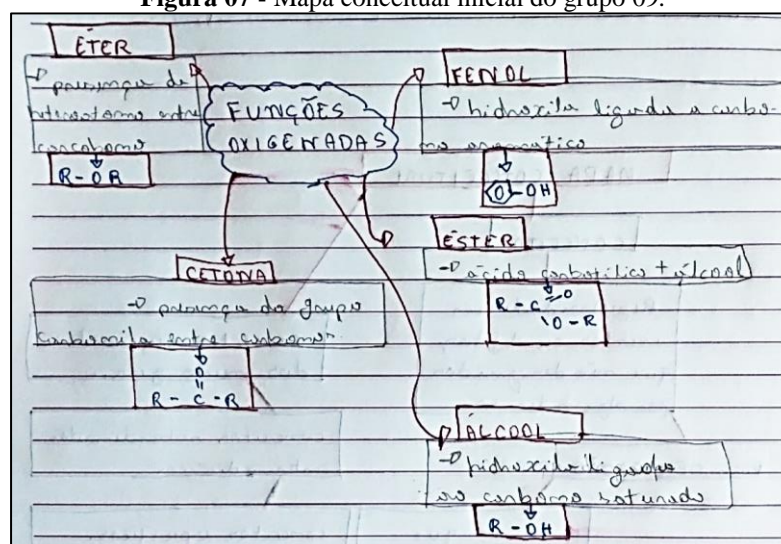 Figura 07 - Mapa conceitual inicial do grupo 09.
ÉTER
presença de
heteroátomo entre
R-OR
FUNÇÕES
OXIGENADAS
FENOL
hidroxila ligada a carbo-
no aromático
-OH
ÉSTER
ácido carboxílico + álcool
R-C=O
\O-R
CETONA
presença do grupo
carbonila entre carbonos
O
=
R-C-R
ÁLCOOL
hidroxila ligada
ao carbono saturado
R-OH